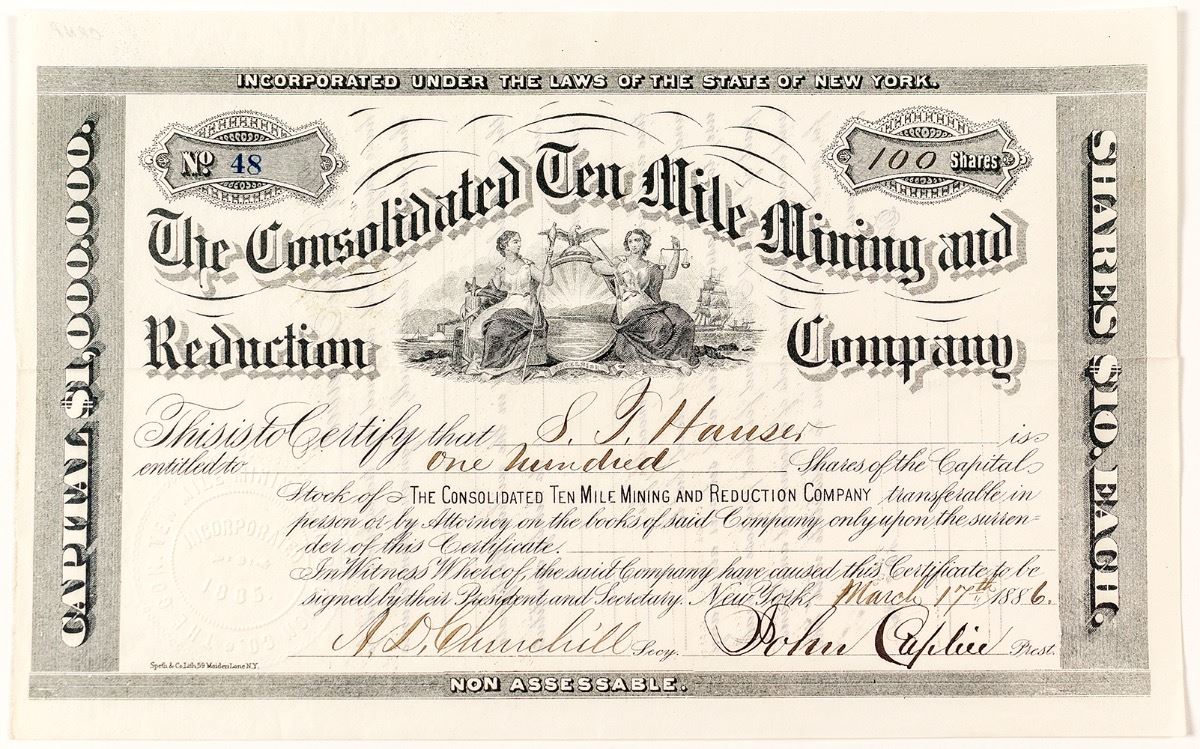 INCORPORATED UNDER THE LAWS OF THE STATE OF NEW YORK.
No 48
100 Shares
The Consolidated Ten Mile Mining and
Reduction Company
CAPITAL $1,000,000.
SHARES $10. EACH.
This is to Certify that S. T. Hauser is
entitled to one hundred Shares of the Capital
Stock of The Consolidated Ten Mile Mining and Reduction Company transferable in
person or by Attorney on the books of said Company only upon the surren=
der of this Certificate.
In Witness Whereof, the said Company have caused this Certificate to be
signed by their President and Secretary. New York, March 17th 1886.
A. D. Churchill Secy. John Caplice Prest.
Speth & Co. Lith, 59 Maiden Lane N.Y.
NON ASSESSABLE.